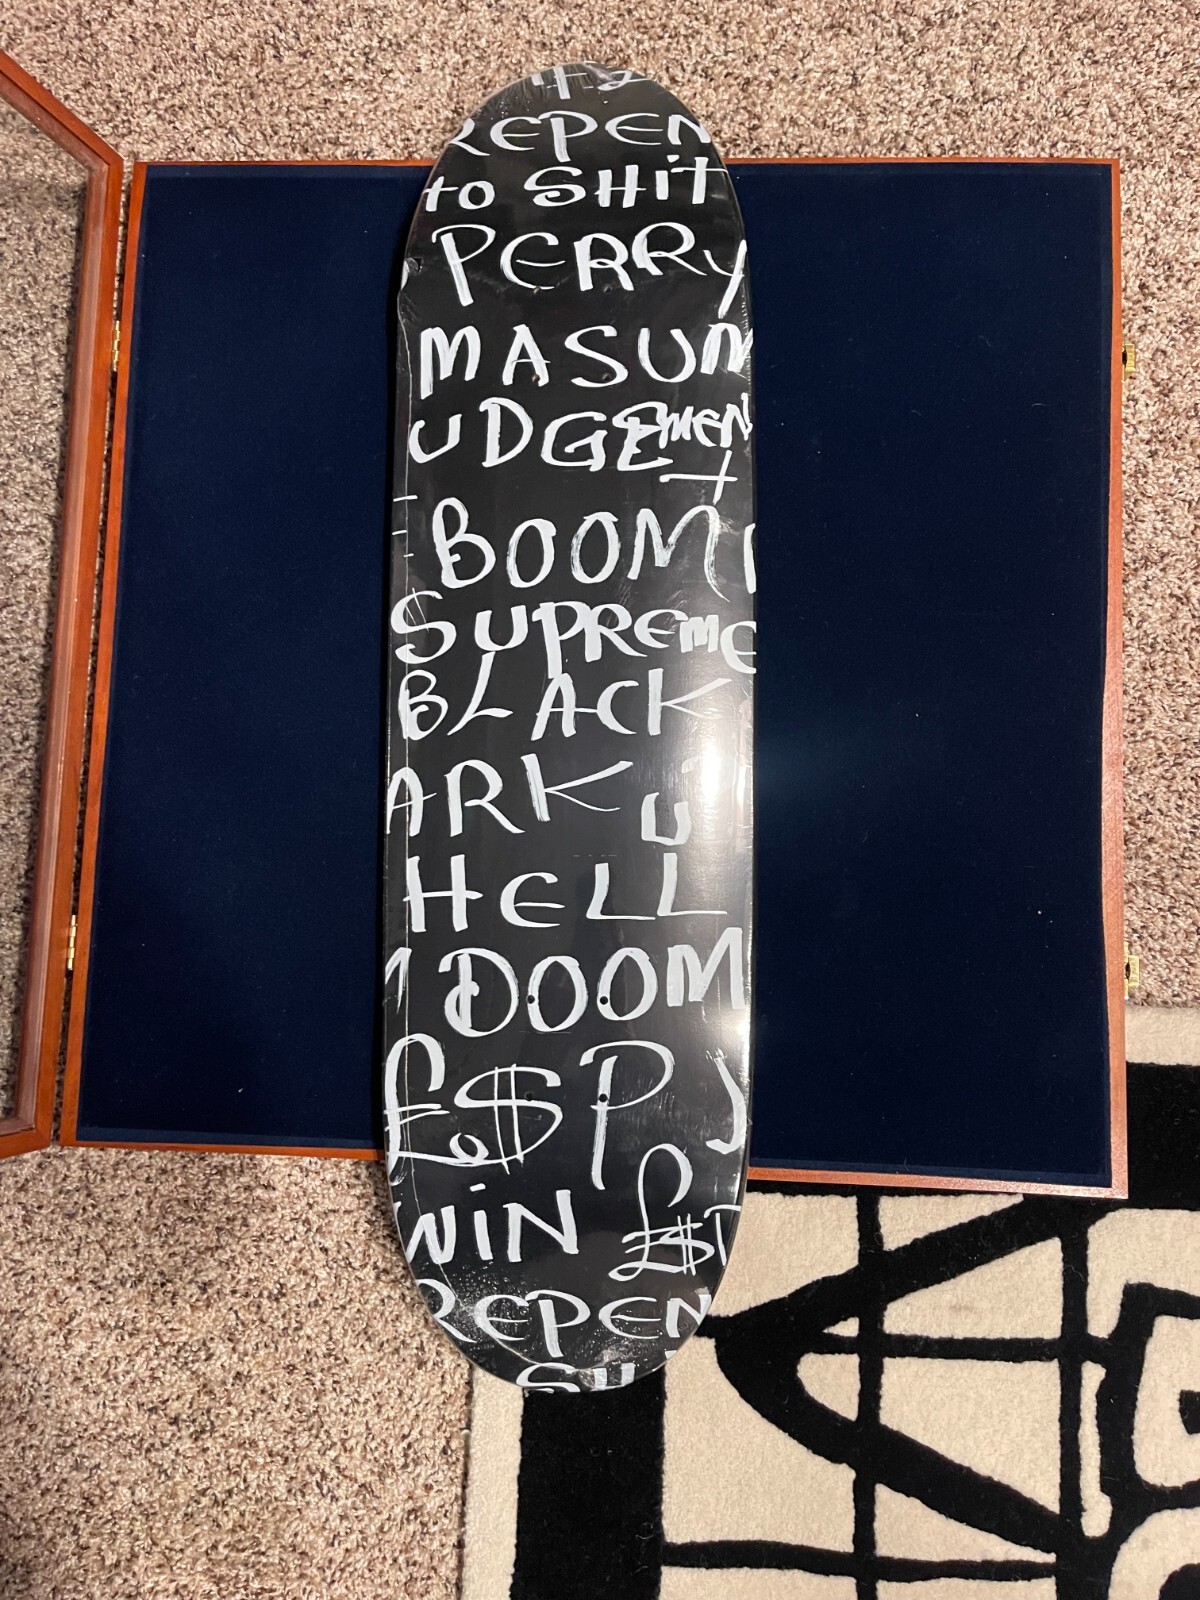 REPEN
to SHiT
PERRY
MASUM
UDGEMEN
BOOM
SUPREME
BLACK
ARK U
HELL
DOOM
£$P J
WiN £$P
REPEN